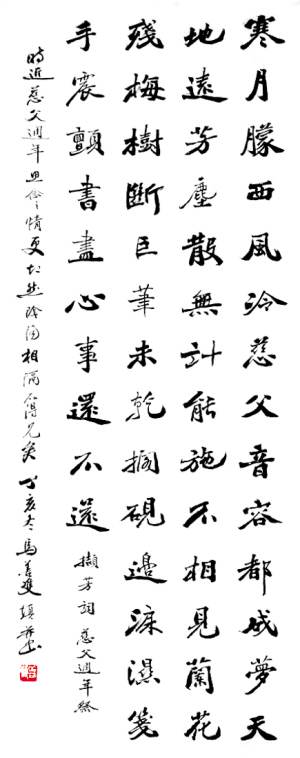 寒月朦西風冷慈父音容都成夢天
地遠芳塵散無計能施不相見蘭花
殘梅樹斷巨筆未乾擱硯邊淚濕箋
手震顫書盡心事還不還 擷芳詞 慈父週年祭
時近慈父週年思念之情更切然陰陽相隔得見矣 丁亥冬馬善雙填并書